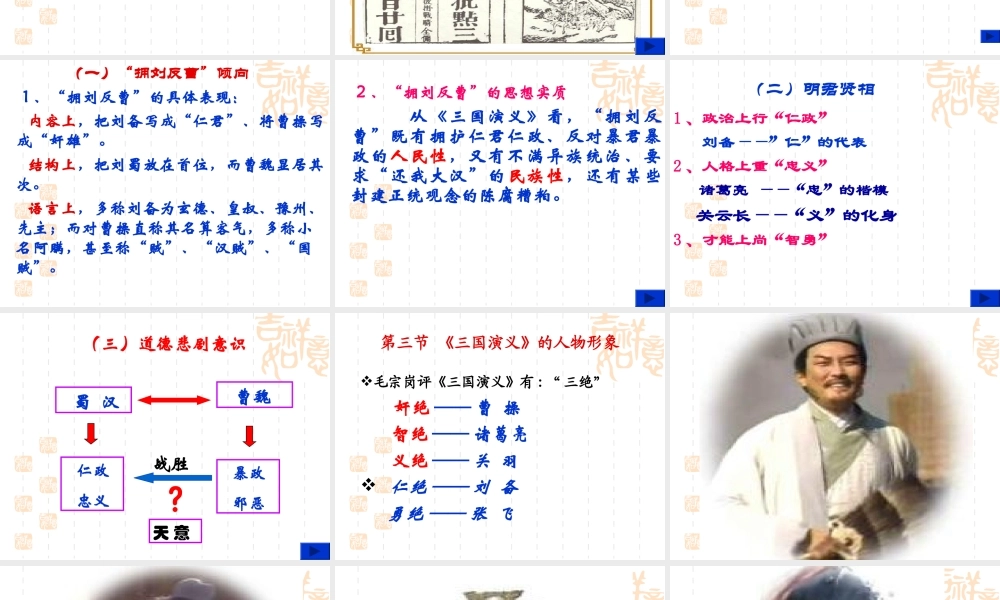 百廿回
批點三
（一）“拥刘反曹”倾向
1、“拥刘反曹”的具体表现：
内容上，把刘备写成“仁君”、将曹操写
成“奸雄”。
结构上，把刘蜀放在首位，而曹魏显居其
次。
语言上，多称刘备为玄德、皇叔、豫州、
先主；而对曹操直称其名算客气，多称小
名阿瞒，甚至称“贼”、“汉贼”、“国
贼”。
2、“拥刘反曹”的思想实质
从《三国演义》看，“拥刘反
曹”既有拥护仁君仁政、反对暴君暴
政的人民性，又有不满异族统治、要
求“还我大汉”的民族性，还有某些
封建正统观念的陈腐糟粕。
（二）明君贤相
1、政治上行“仁政”
刘备－－”仁”的代表
2、人格上重“忠义”
诸葛亮 －－“忠”的楷模
关云长－－“义”的化身
3、才能上尚“智勇”
（三）道德悲剧意识
蜀 汉
曹魏
仁政
忠义
战胜
？
暴政
邪恶
天意
第三节 《三国演义》的人物形象
❖毛宗岗评《三国演义》有：“三绝”
奸绝——曹 操
智绝——诸葛亮
义绝——关 羽
❖ 仁绝——刘 备
勇绝——张 飞
吉祥如意